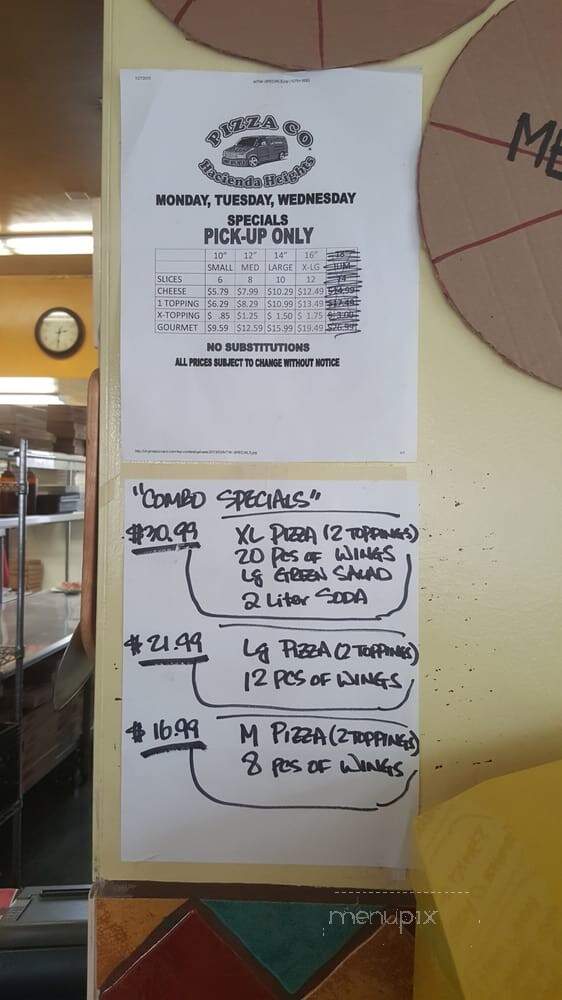 ME
PIZZA CO.
Hacienda Heights
MONDAY, TUESDAY, WEDNESDAY
SPECIALS
PICK-UP ONLY
10" 12" 14" 16" 18"
SMALL MED LARGE X-LG
SLICES 6 8 10 12
CHEESE $5.79 $7.99 $10.29 $12.49 $14.99
1 TOPPING $6.29 $8.29 $10.99 $13.49 $17.48
X-TOPPING $ .85 $1.25 $ 1.50 $ 1.75
GOURMET $9.59 $12.59 $15.99 $19.49 $26.99
NO SUBSTITUTIONS
ALL PRICES SUBJECT TO CHANGE WITHOUT NOTICE
"COMBO SPECIALS"
$30.99 XL PIZZA (2 TOPPINGS)
20 PCS OF WINGS
Lg GREEN SALAD
2 Liter SODA
$21.99 Lg PIZZA (2 TOPPINGS)
12 PCS OF WINGS
$16.99 M PIZZA (2 TOPPINGS)
8 PCS OF WINGS
menupix